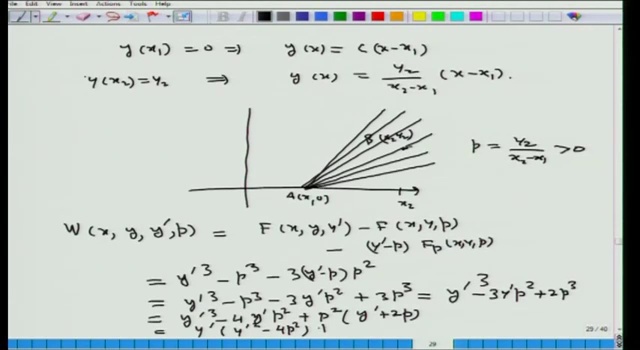 View Insert Actions Tools Help
y(x₁) = 0 ⇒ y(x) = C(x-x₁)
y(x₂) = y₂ ⇒ y(x) = y₂/(x₂-x₁) (x-x₁).
B(x₂,y₂)
p = y₂/(x₂-x₁) > 0
A(x₁,0)
x₂
W(x, y, y', p) = F(x, y, y') - F(x, y, p)
- (y'-p) Fp(x,y,p)
= y'³ - p³ - 3(y'-p)p²
= y'³ - p³ - 3y'p² + 3p³ = y'³ - 3y'p² + 2p³
= y'³ - 4y'p² + p²(y'+2p)
= y'(y'² - 4p²) +
29 / 40
29